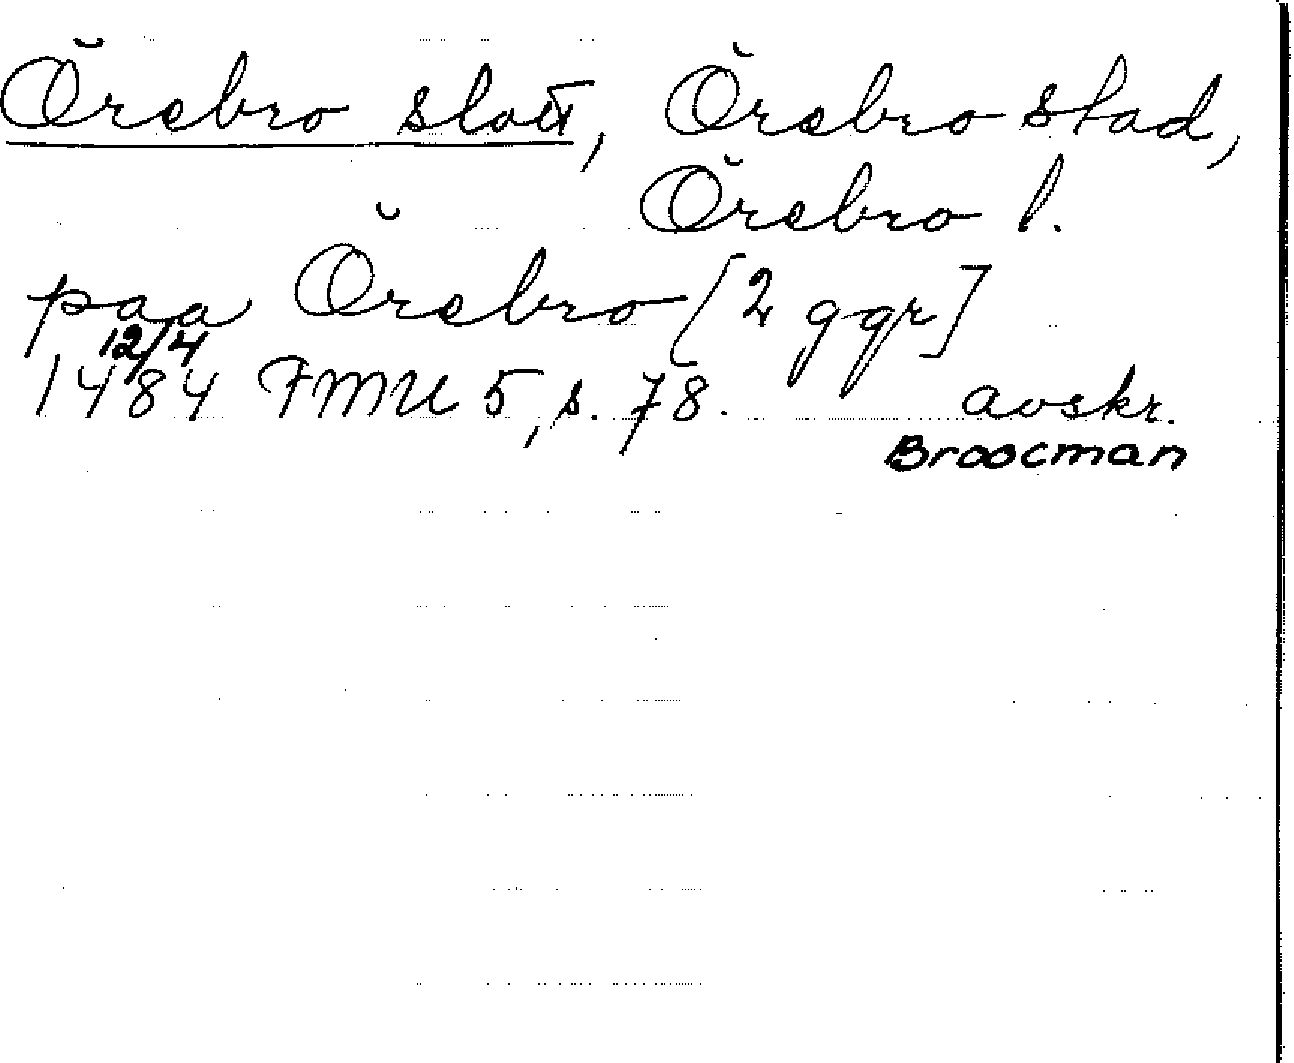 Örebro slott, Örebro stad,
Örebro l.
paa Örebro [2 ggr]
12/4
1484 FMU 5, s. 78. avskr.
Broocman